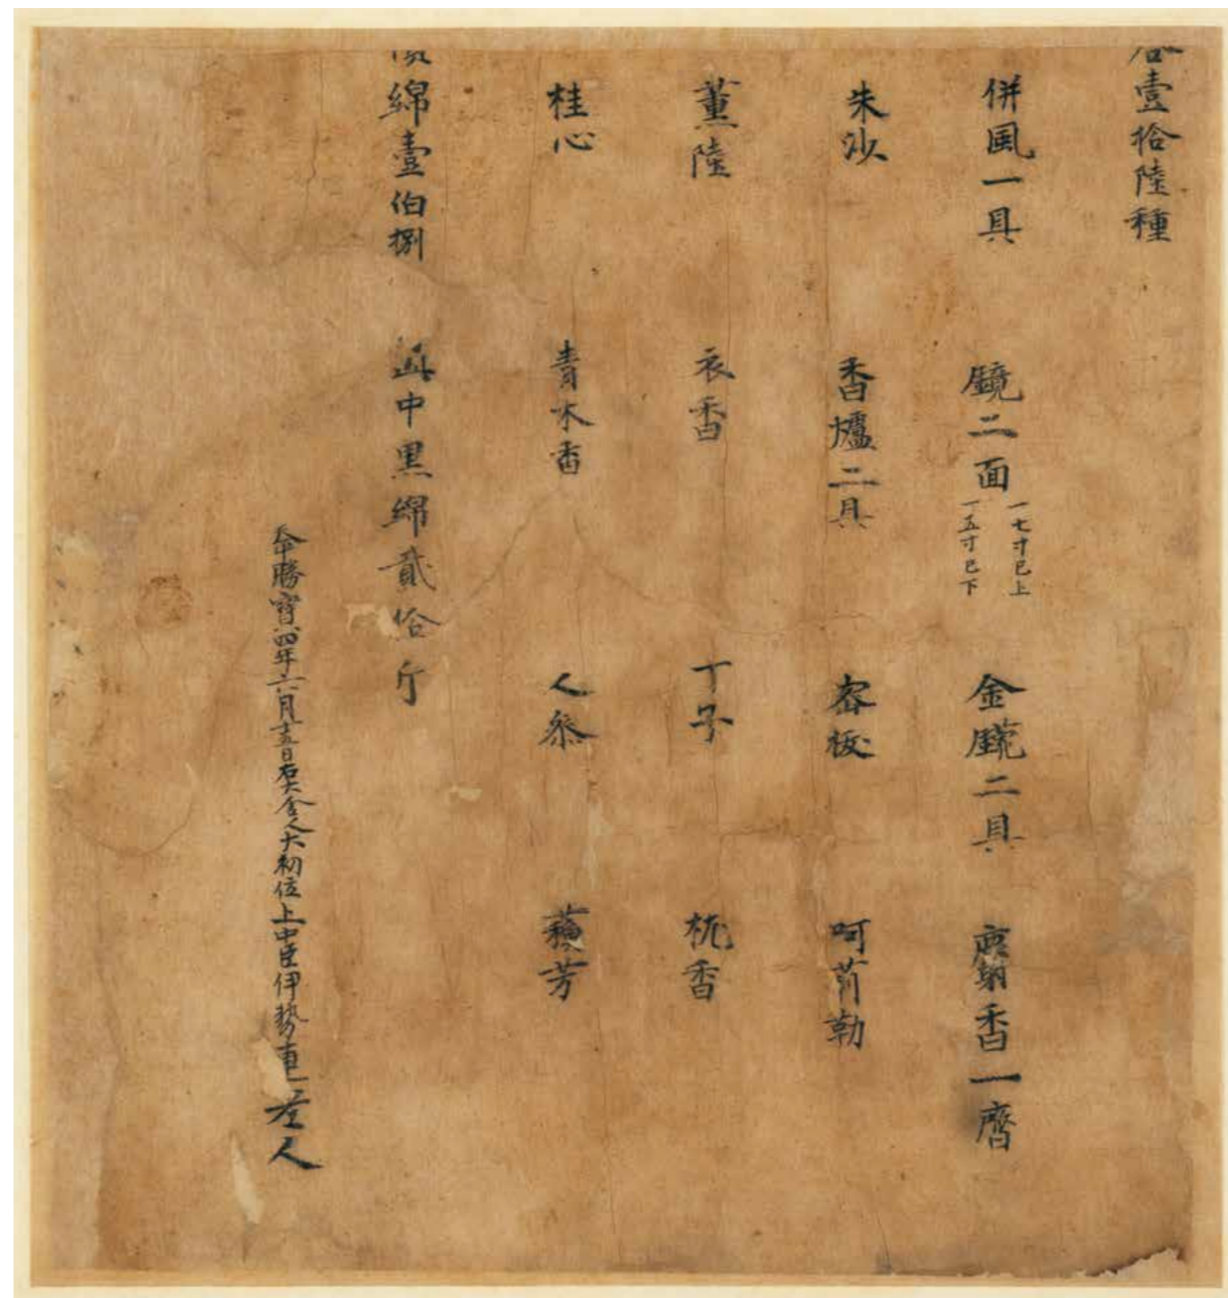 合壹拾陸種
併風一具 鏡二面 一七寸已上 一五寸已下 金鋺二具 麝香一齊
朱沙 香爐二具 蜜拔 呵莉勒
薫陸 衣香 丁子 枕香
桂心 青木香 人参 蘓芳
綿壹伯捌 中黒綿貳伯斤
勝寳四年六月十五日右大舎人大初位上中臣伊勢連老人